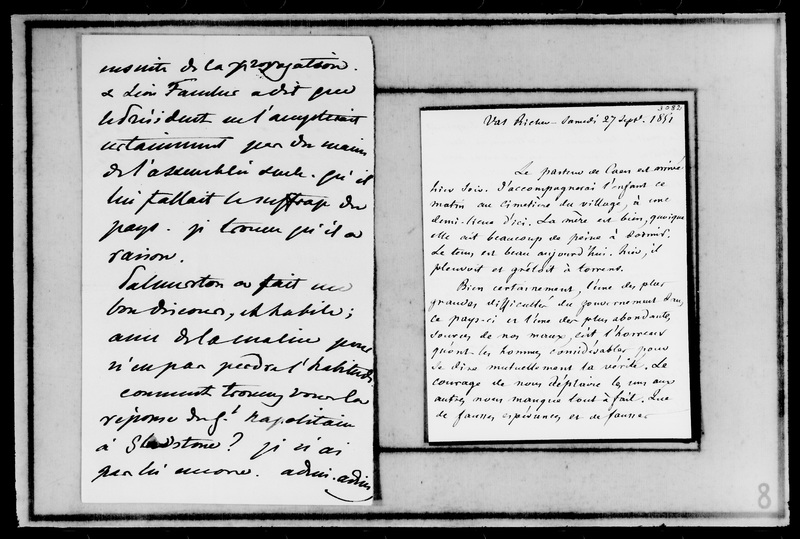 ensuite de la propagation.
& Léon Faucher a dit que
le Président ne l'accepterait
certainement pas des mains
de l'assemblée seule. qu'il
lui fallait le suffrage du
pays. je trouve qu'il a
raison.
Palmerston a fait un
bon discours, et habile;
avec de la malice pour
n'en pas perdre l'habitude.
comment trouvez vous la
réponse du gt Napolitain
à Gladstone? je n'ai
pas lu encore. adieu. adieu
3082
Val Richer - Samedi 27 Sept. 1851
Le pasteur de Caen est arrivé
hier soir. J'accompagnerai l'enfant ce
matin au cimetière du village, à une
demi-lieue d'ici. La mère est bien, quoique
elle ait beaucoup de peine à dormir.
Le tems est beau aujourd'hui. hier, il
pleuvoit et gréloit à torrens.
Bien certainement, l'une des plus
grandes difficultés du gouvernement dans
ce pays-ci et l'une des plus abondantes
sources de nos maux, c'est l'horreur
qu'ont les hommes considérables pour
se dire mutuellement la vérité. Le
courage de nous déplaire les uns aux
autres nous manque tout à fait. Que
de fausses espérances et de fausses
8